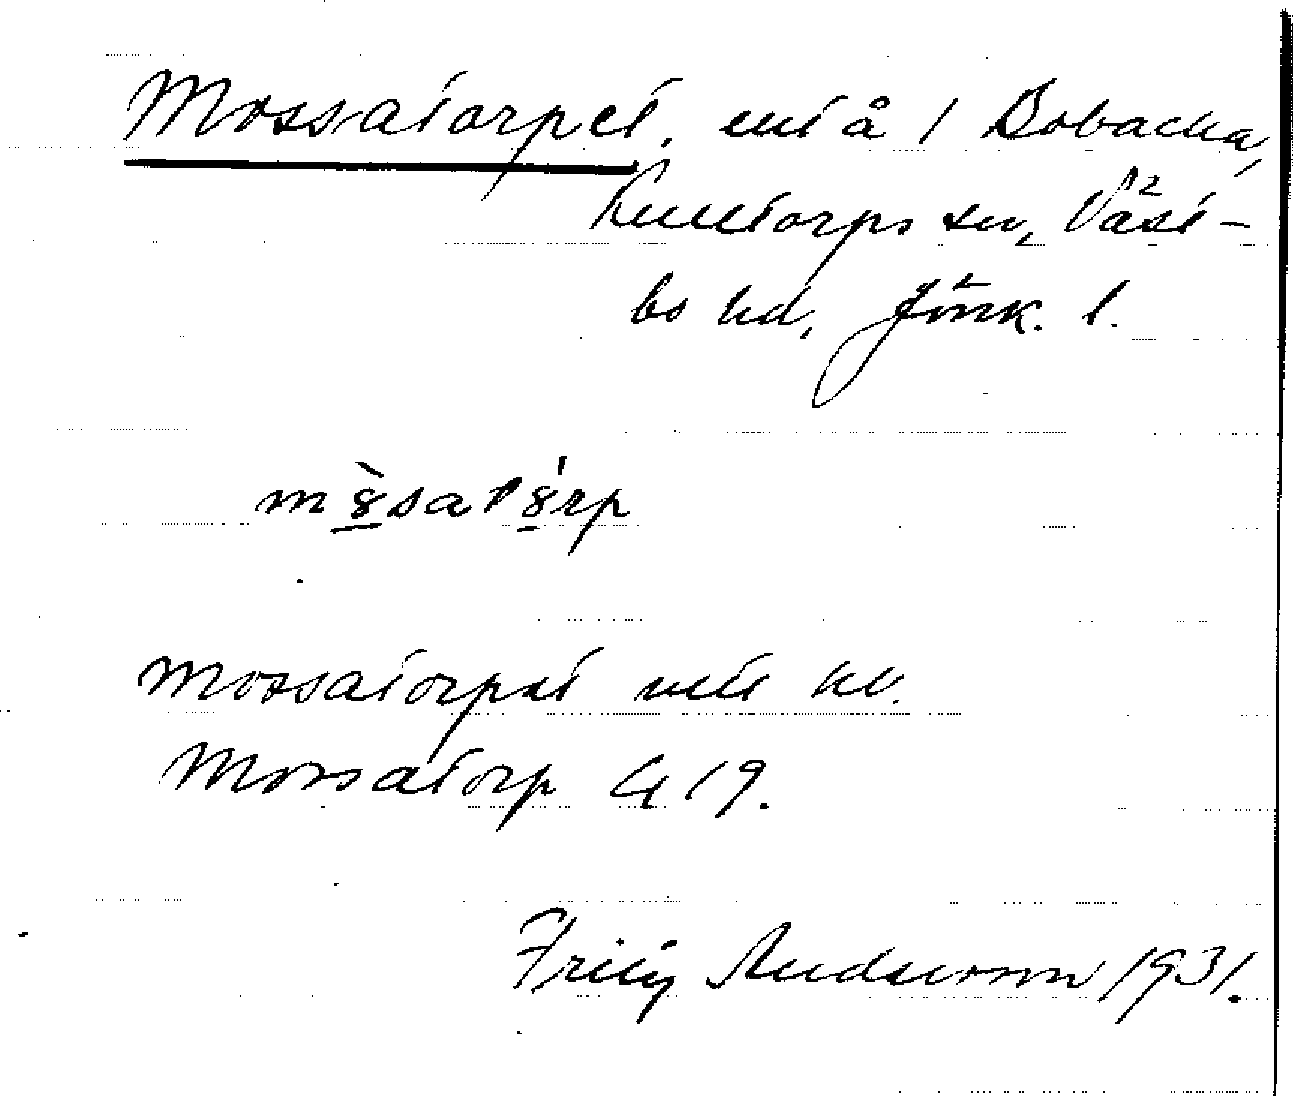 Mossatorpet, ent å 1 Bobacka,
Kulltorps sn, Väst-
bo hd, Jönk. l.
Mossatorpet
Mossatorp G 19.
Fritz Andersson 1931.